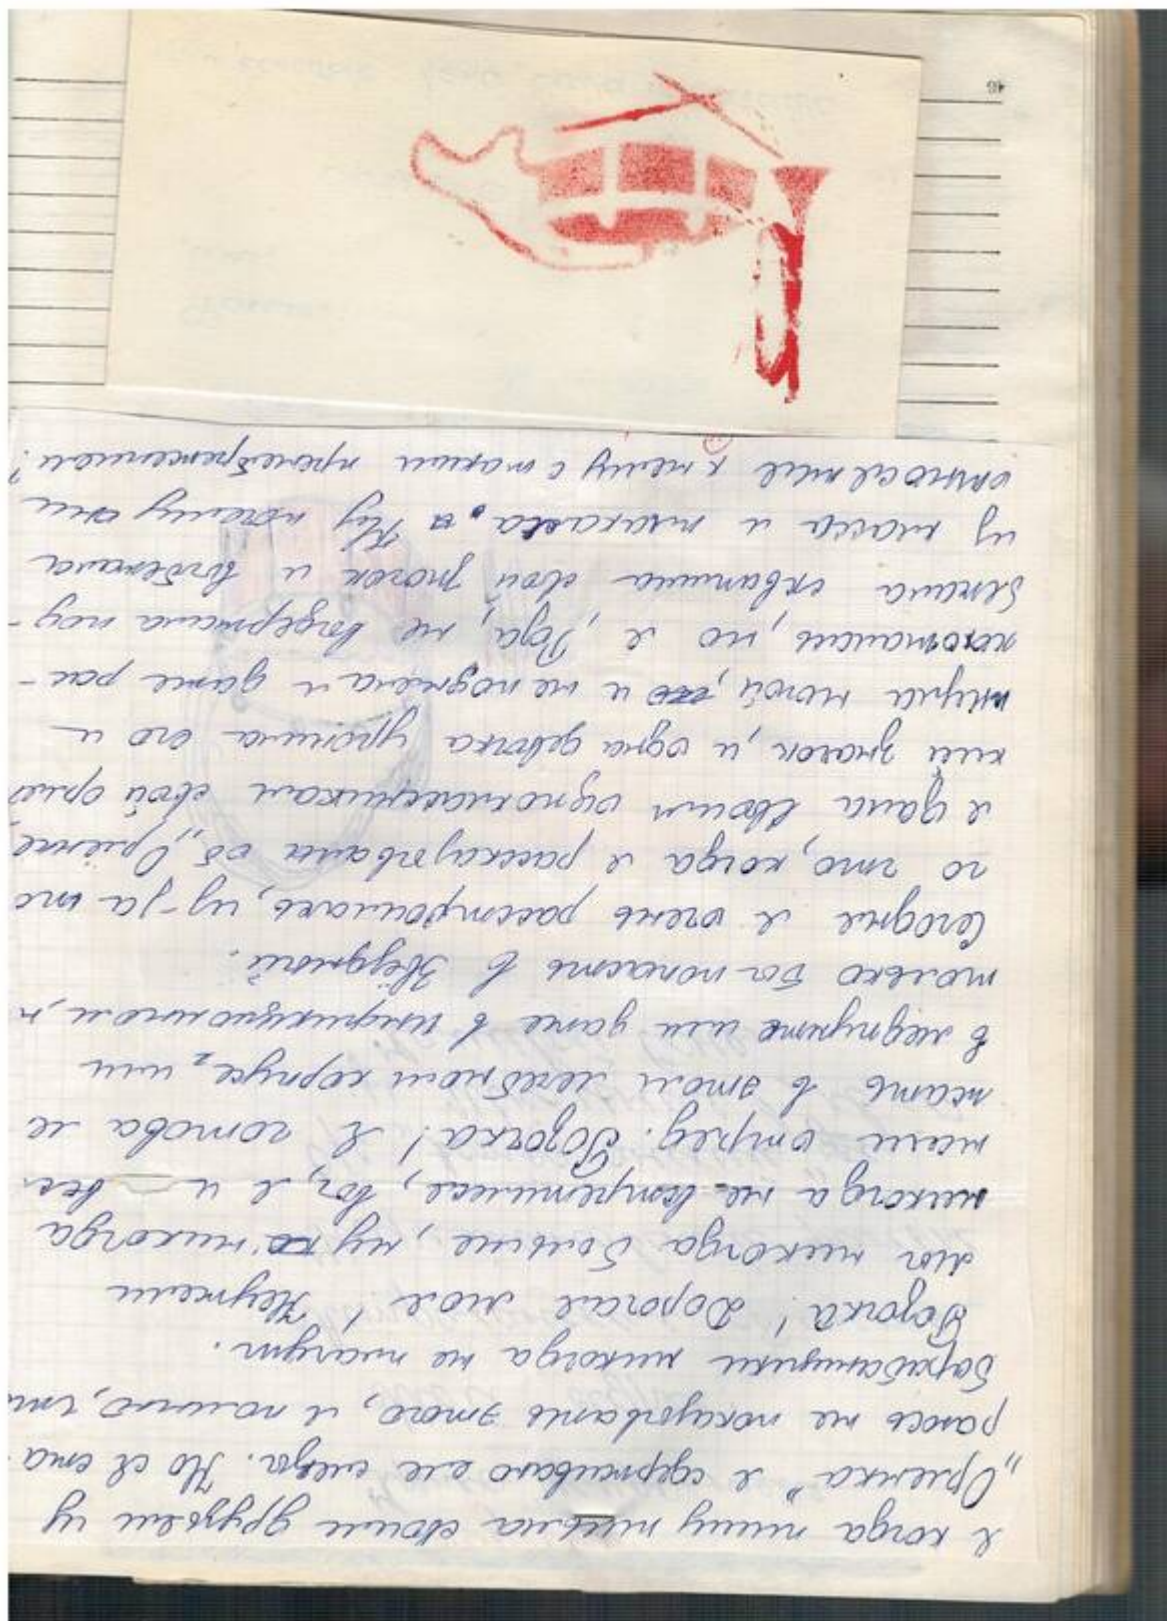 я когда пишу письма своим друзьям из
„Орленка" я сдерживаю еле слезы. Но я ста-
раюсь не показывать этого, я помню, что
барабанщики никогда не плачут.
Розочка! Дорогая моя! Неужели
мы никогда больше, ну никогда
никогда не встретимся, вот, я и весь
наш отряд. Розочка! Я готова ле
жать в этом лечебном корпусе, или
в медпункте или даже в инфекционном,
только бы попасть в Звёздный.
Сегодня я очень расстроилась, из-за то
го что, когда я рассказывала об „Орлёнке"
я дала своим одноклассникам свой орлят
кий значок, и одна девочка уронила его и
пнула ногой, и не подняла и даже рас-
хохоталась, но я, Роза, не выдержала под-
бежала схватила свой значок и выбежала
из класса и плакала. Ну почему они
относятся к нему с таким пренебрежением?
46